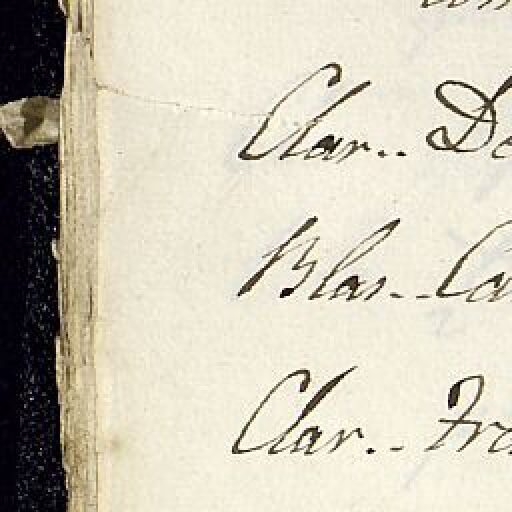 Clar.. De
Blas.. Ca
Clar.. Fra